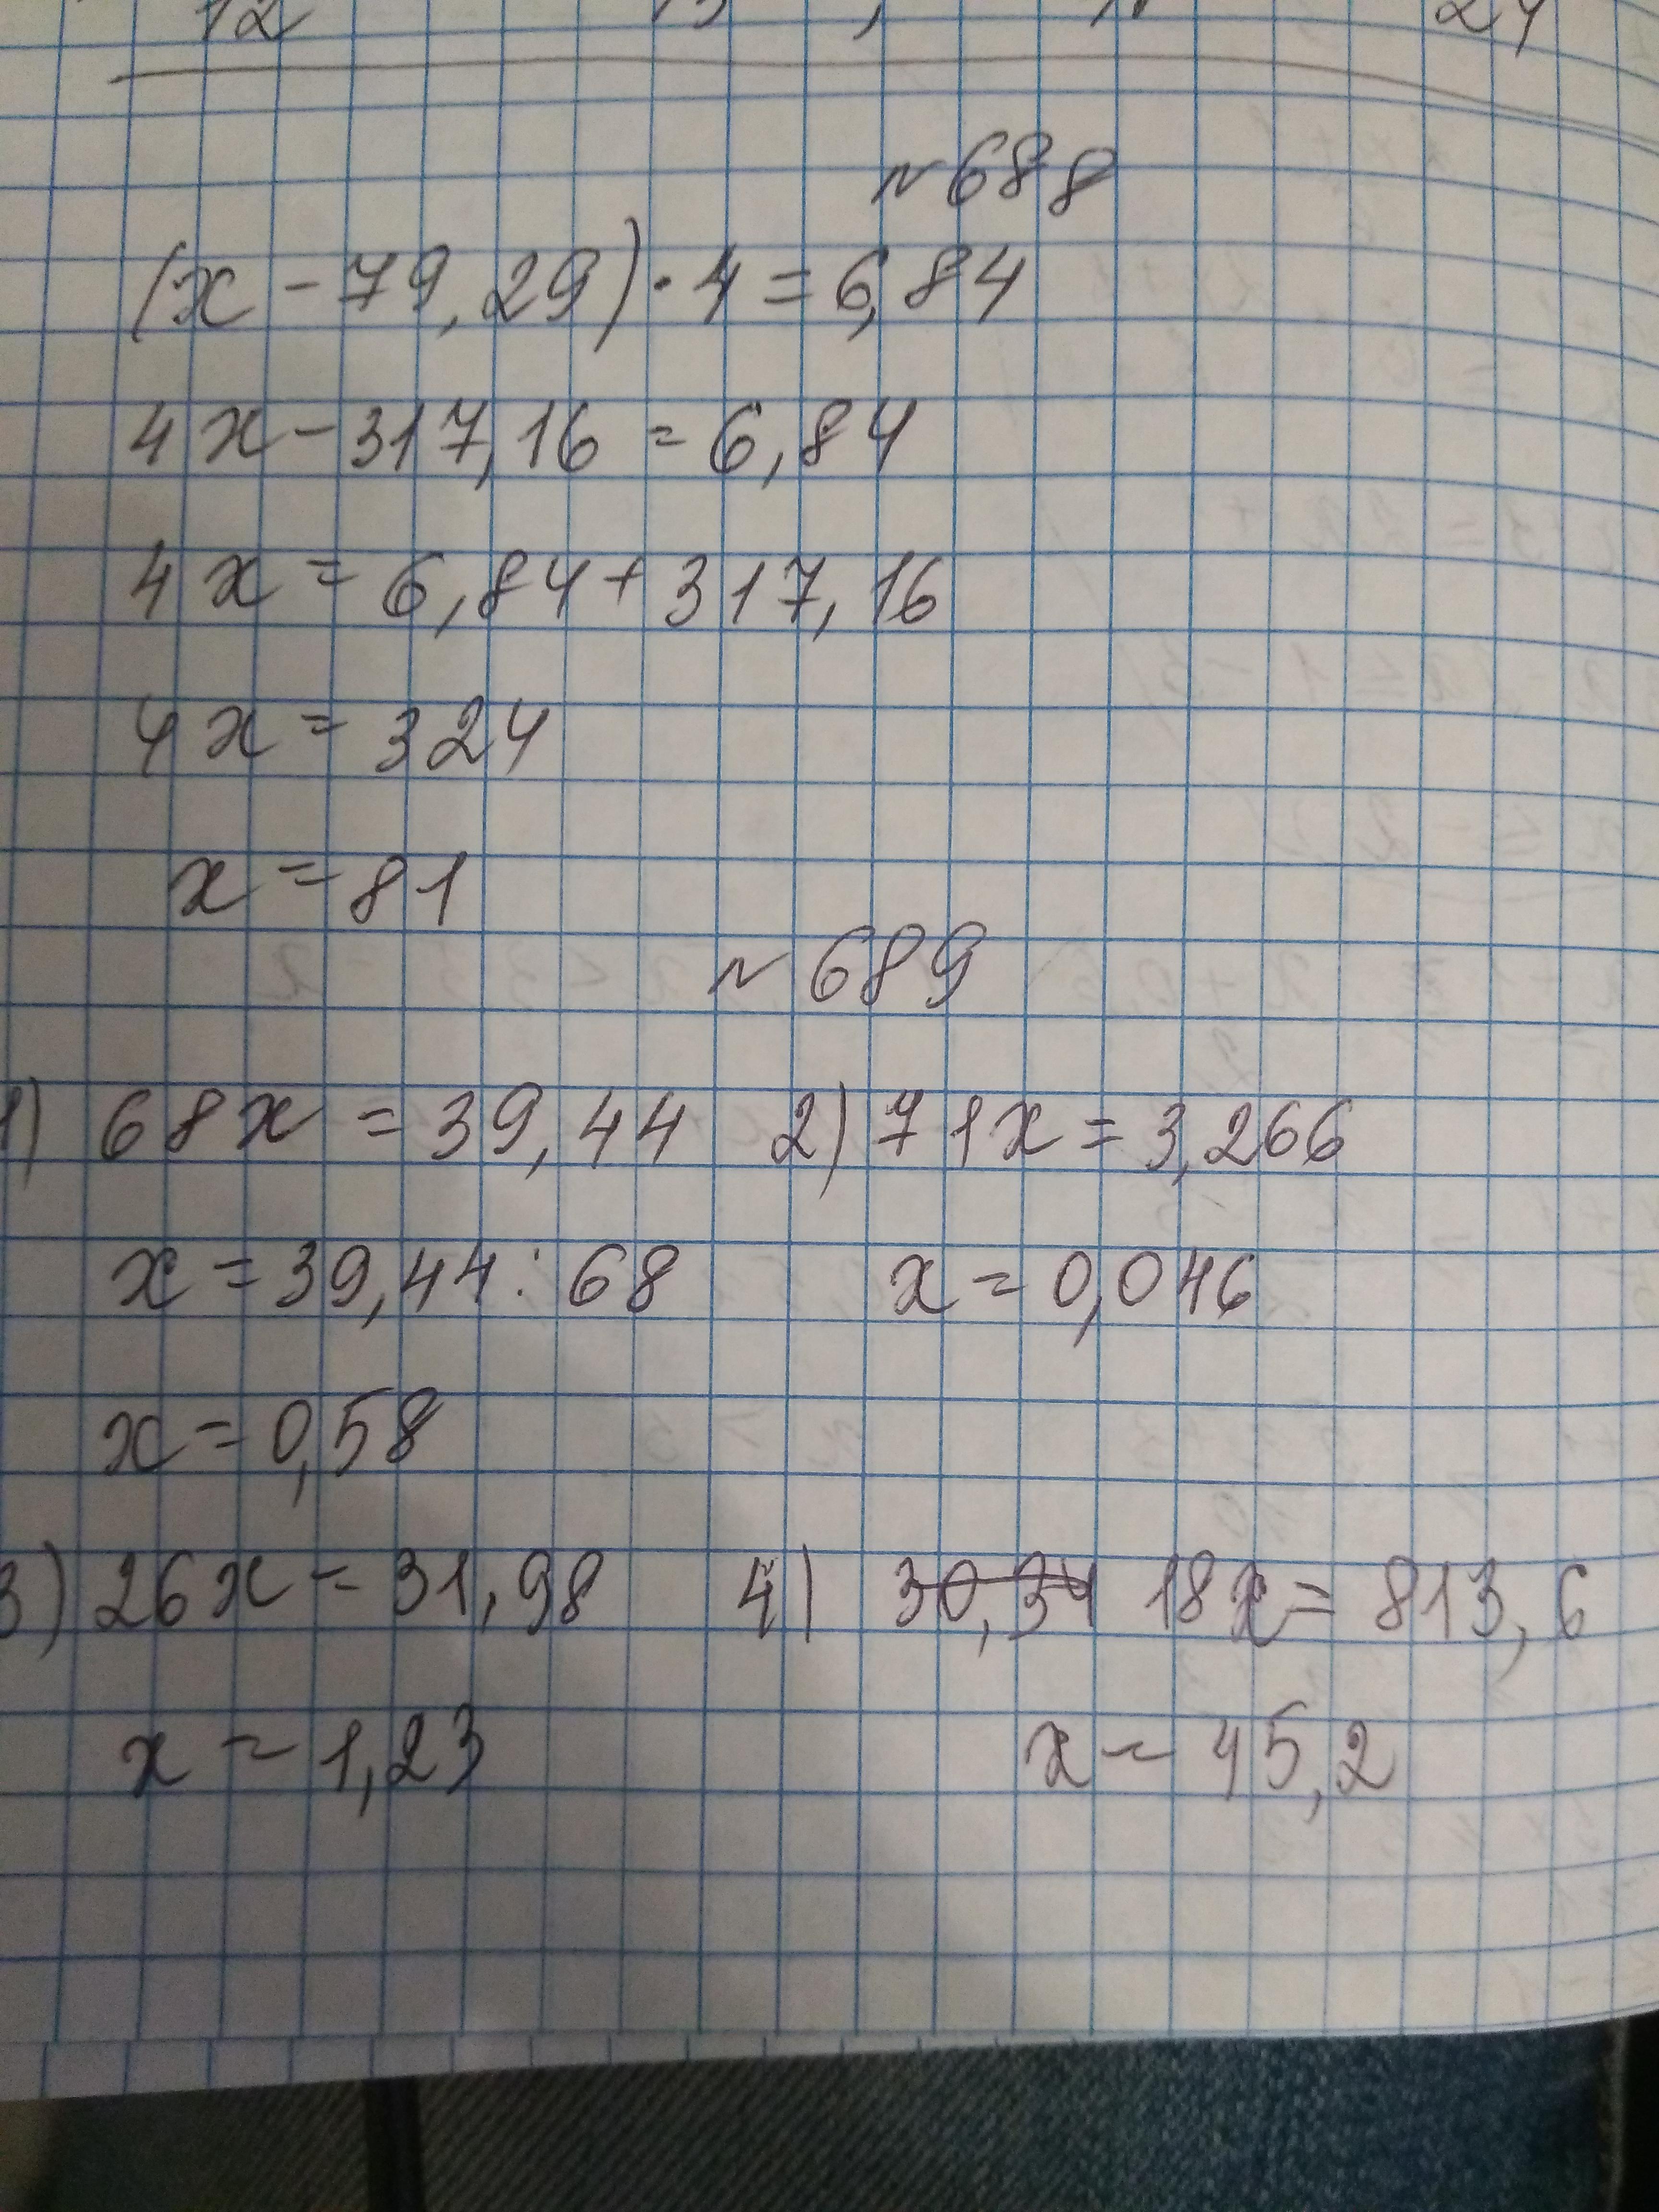 12 13 , 24
№688
(x - 79,29) · 4 = 6,84
4x - 317,16 = 6,84
4x = 6,84 + 317,16
4x = 324
x = 81
№689
1) 68x = 39,44 2) 71x = 3,266
x = 39,44 : 68 x = 0,046
x = 0,58
3) 26x = 31,98 4) 30,34 18x = 813,6
x = 1,23 x = 45,2